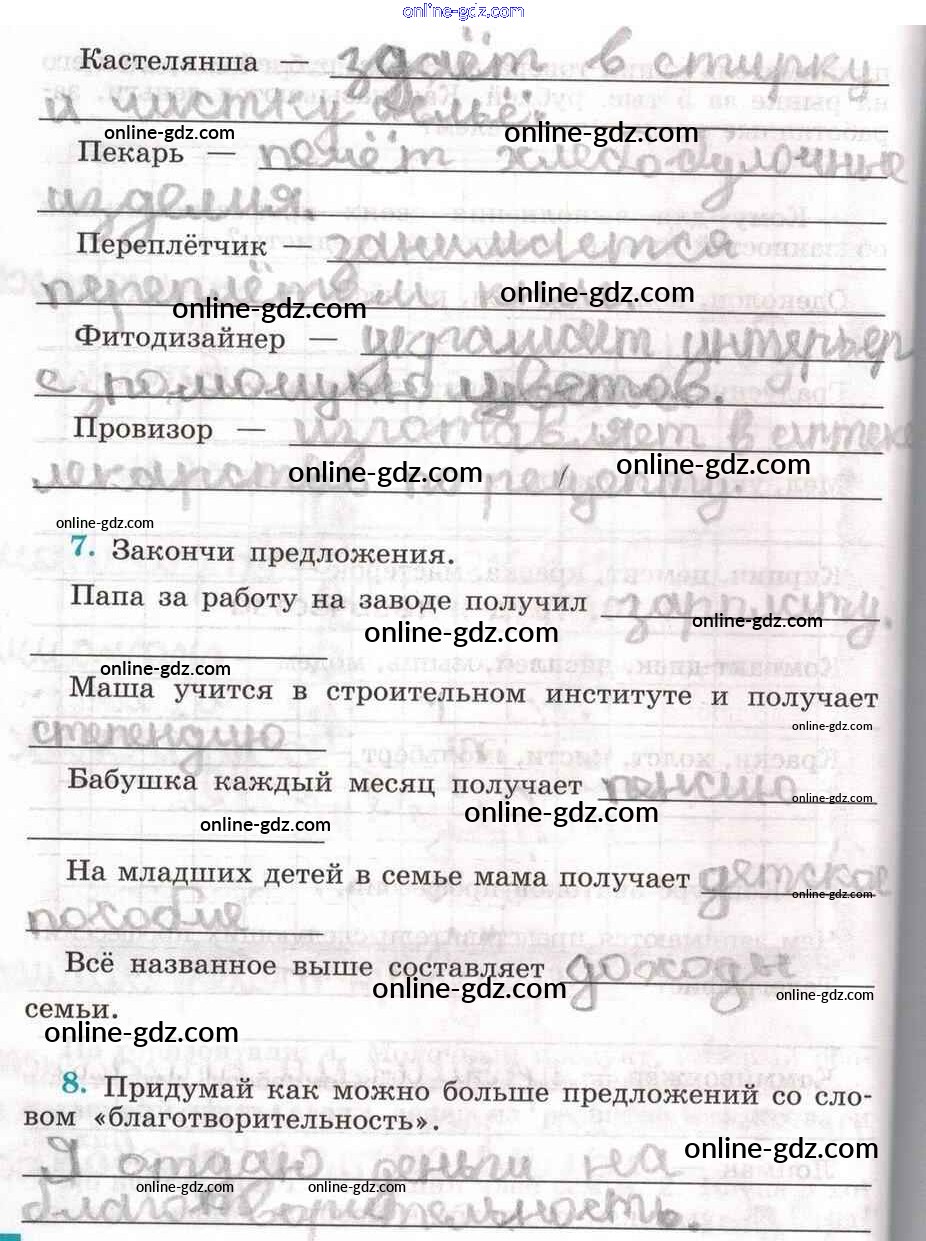 online-gdz.com
Кастелянша — здаёт в стирку
и чистку бельё.
online-gdz.com online-gdz.com
Пекарь — печёт хлебобулочные
изделия.
Переплётчик — занимается
переплётами книг.
online-gdz.com online-gdz.com
Фитодизайнер — украшает интерьер
с помощью цветов.
Провизор — изготавляет в аптеке
лекарства по рецепту.
online-gdz.com online-gdz.com
online-gdz.com
7. Закончи предложения.
Папа за работу на заводе получил зарплату.
online-gdz.com online-gdz.com
online-gdz.com
Маша учится в строительном институте и получает
степендию
online-gdz.com
Бабушка каждый месяц получает пенсию
online-gdz.com online-gdz.com
online-gdz.com
На младших детей в семье мама получает детское
online-gdz.com
пособие
Всё названное выше составляет доходы
online-gdz.com online-gdz.com
семьи.
online-gdz.com
8. Придумай как можно больше предложений со сло-
вом «благотворительность».
online-gdz.com
Я отдаю деньги на
online-gdz.com online-gdz.com
благотворительность.